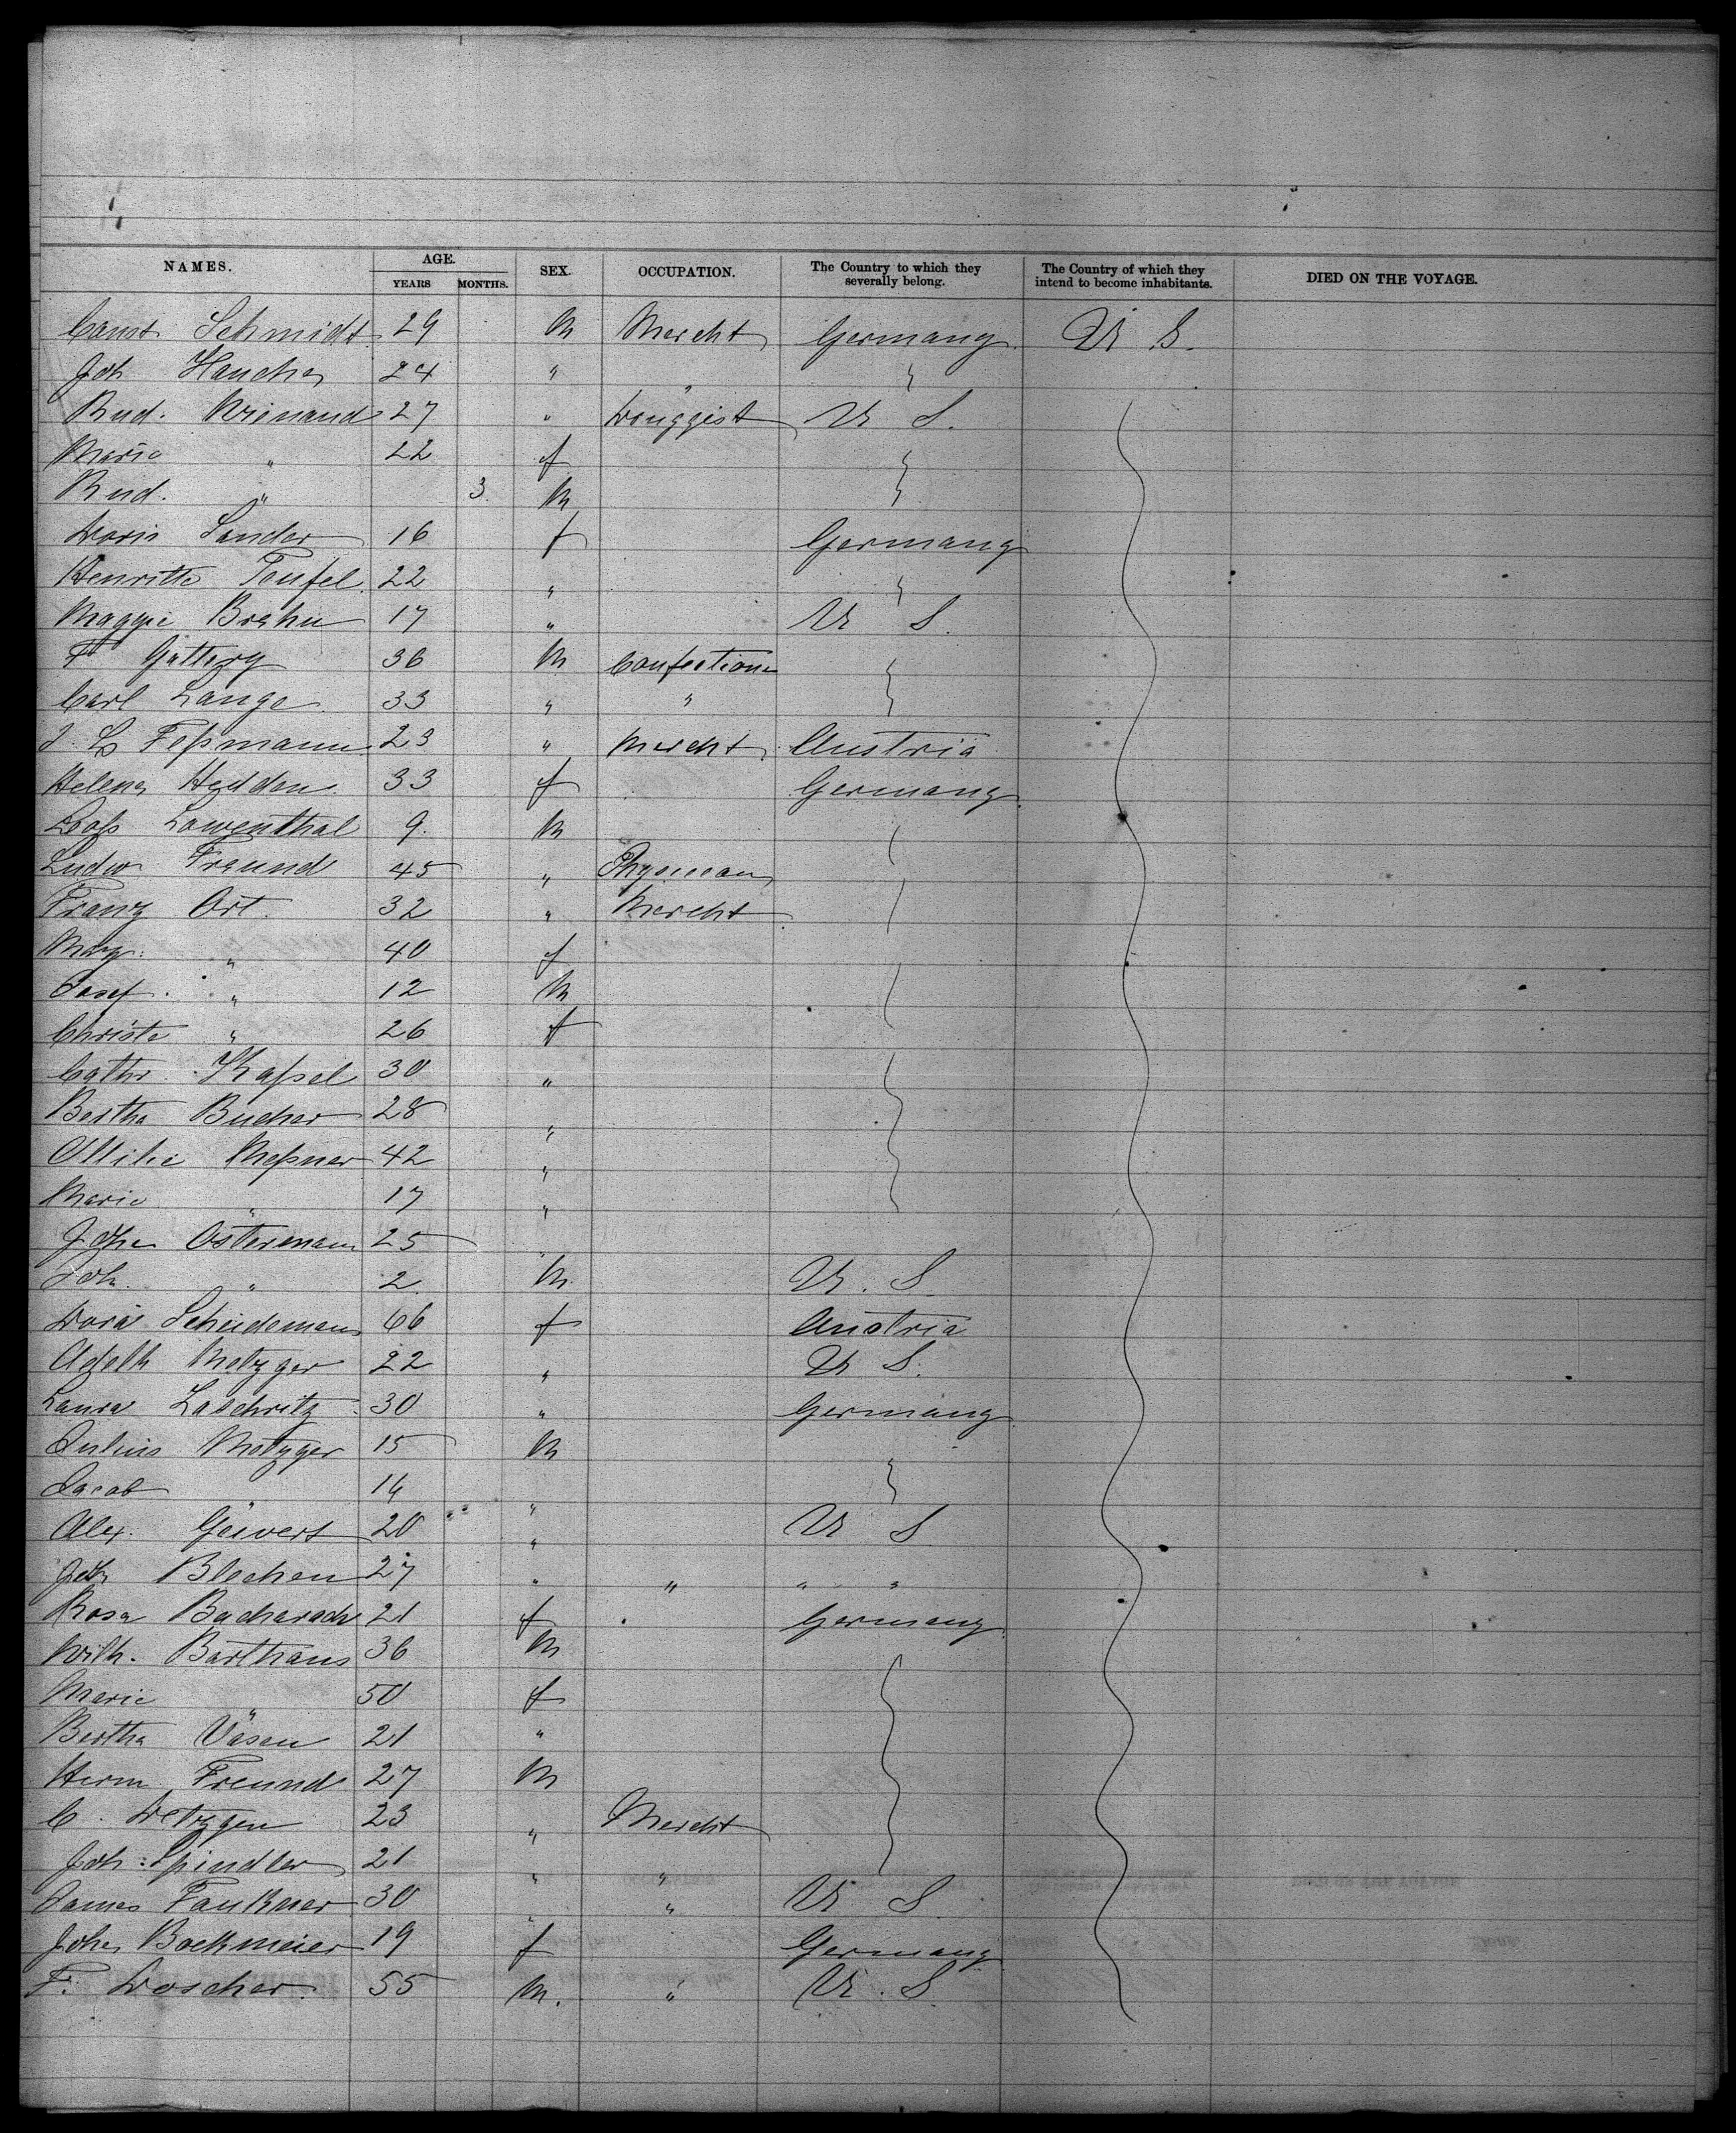 NAMES. AGE. YEARS MONTHS. SEX. OCCUPATION. The Country to which they severally belong. The Country of which they intend to become inhabitants. DIED ON THE VOYAGE.
Schmidt 29 M Mercht Germany U S.
Joh 24 " "
Rud. Wienand 27 " Druggist U S.
Marie " 22 f
Rud. " 3. M
Doris Sander 16 f Germany
Henritte Teufel 22 "
Maggie Brehn 17 " U S.
F 36 M Confectioner
Carl Lange 33 " "
Feßmann 23 " Mercht Austria
Helena Hedden 33 f Germany
Lowenthal 9. M
Ludw Freund 45 " Physician
Franz Ort. 32 " Mercht
Mary. " 40 f
Josef. " 12 M
Christe " 26 f
Cathr. Kaßel 30 "
Bertha Bucher 28 "
Ottilie Meßner 42 "
Marie " 17 "
Joha Ostermann 25 "
Joh. " 2. M. U. S.
Dora Scheidemann 66 f Austria
Adelh Metzger 22 " U S.
Laura Laschwitz 30 " Germany
Julius Metzger 15 M
Jacob " 14 "
Alex. Geivers 20 " U S
Joh Blechen 27 " " " "
Rosa Bacharach 21 f Germany
Wilh. Barthaus 36 M
Marie " 50 f
Bertha Vasen 21 "
Herm Freund 27 M
C. Detzgen 23 " Mercht
Joh. Spindler 21 " "
James Faulkner 30 " " U S
Joha Bockmeier 19 f Germany
F. Doscher. 55 M. " U. S.